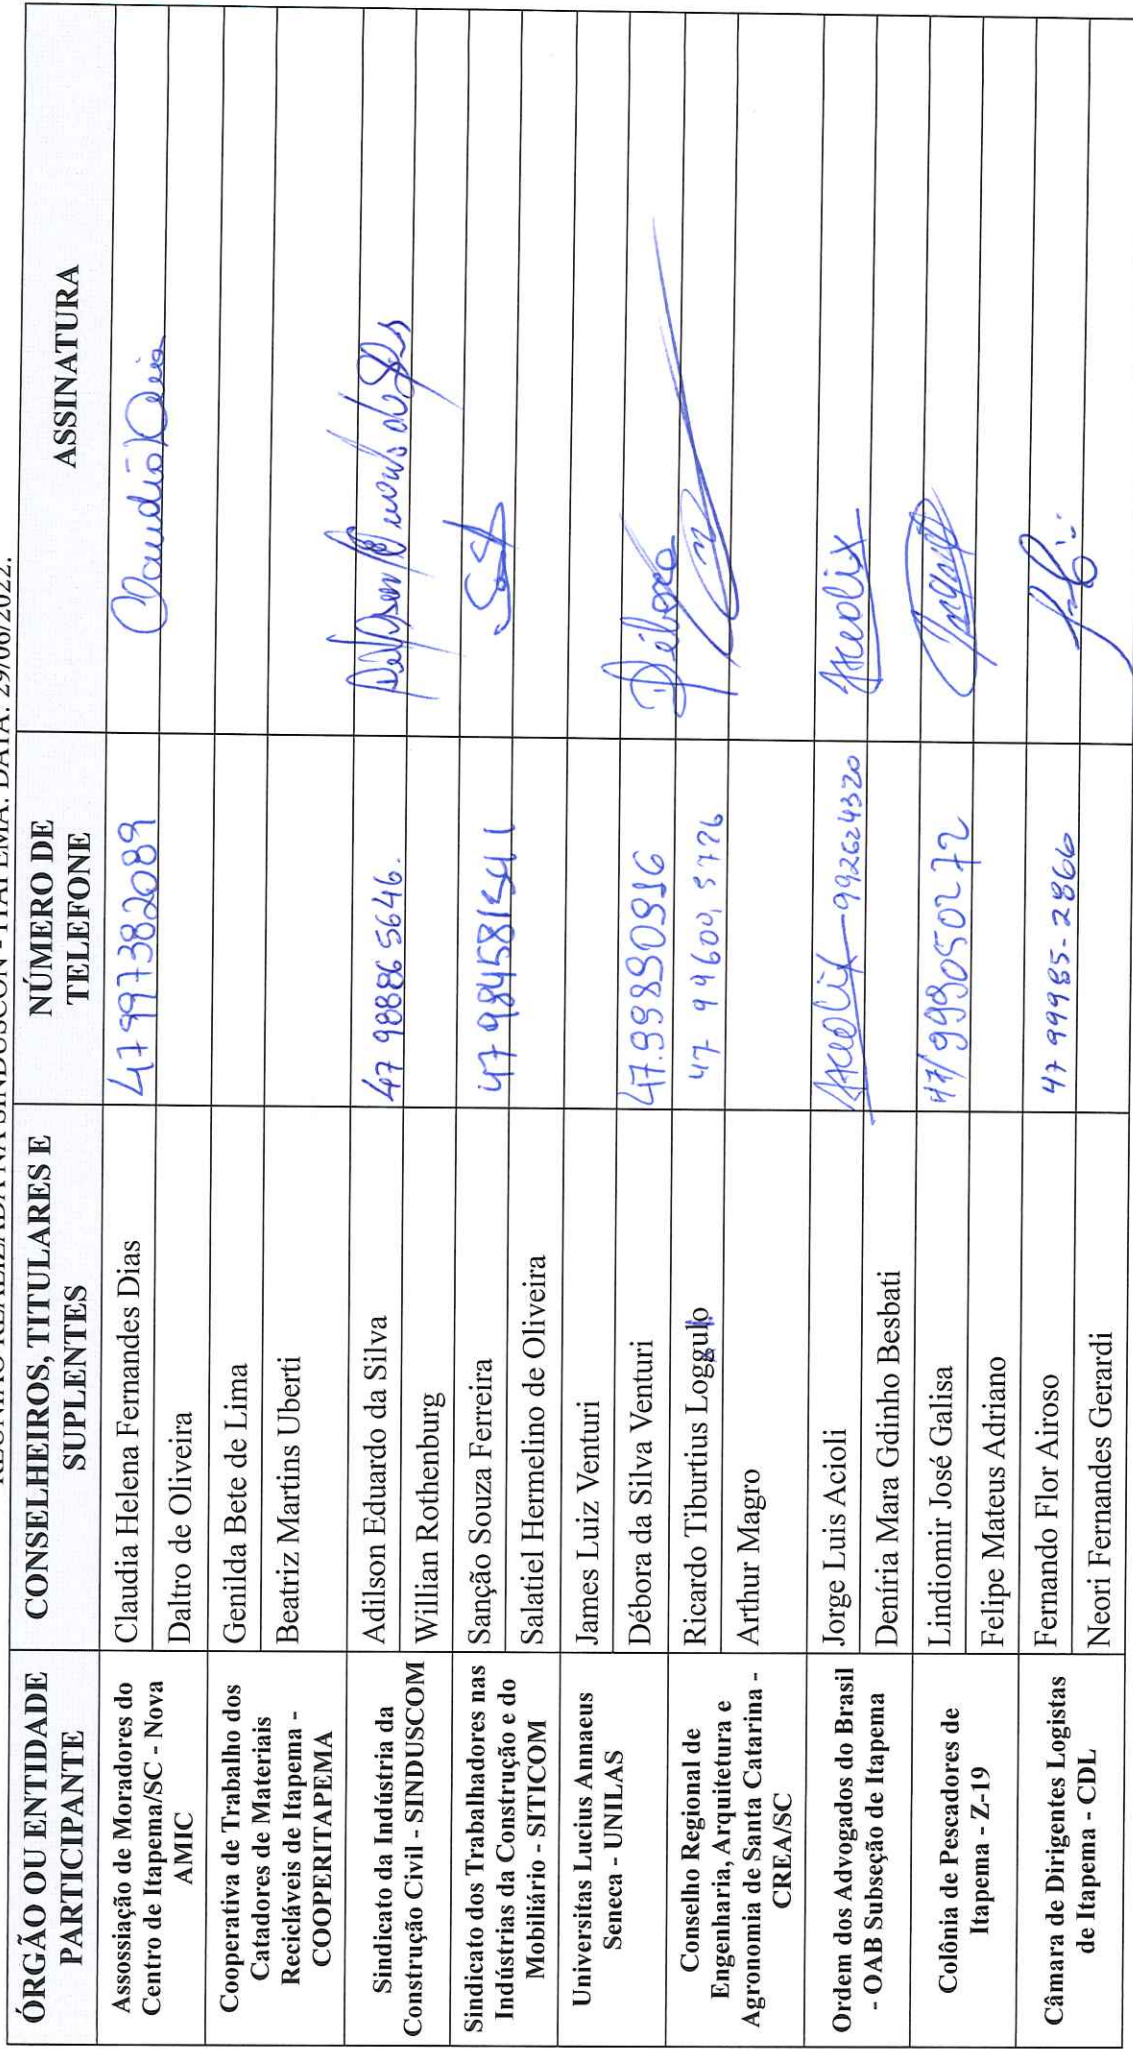 REUNIÃO REALIZADA NA SINDUSCON - ITAPEMA. DATA: 29/06/2022.
ÓRGÃO OU ENTIDADE PARTICIPANTE
CONSELHEIROS, TITULARES E SUPLENTES
NÚMERO DE TELEFONE
ASSINATURA
Assossiação de Moradores do
Centro de Itapema/SC - Nova
AMIC
Claudia Helena Fernandes Dias
47997382089
Claudia Dias
Daltro de Oliveira
Cooperativa de Trabalho dos
Catadores de Materiais
Recicláveis de Itapema -
COOPERITAPEMA
Genilda Bete de Lima
Beatriz Martins Uberti
Sindicato da Indústria da
Construção Civil - SINDUSCOM
Adilson Eduardo da Silva
47 98886 5646.
Willian Rothenburg
Sindicato dos Trabalhadores nas
Indústrias da Construção e do
Mobiliário - SITICOM
Sanção Souza Ferreira
47 984581541
Salatiel Hermelino de Oliveira
Universitas Lucius Annaeus
Seneca - UNILAS
James Luiz Venturi
Débora da Silva Venturi
47.999890916
Débora
Conselho Regional de
Engenharia, Arquitetura e
Agronomia de Santa Catarina -
CREA/SC
Ricardo Tiburtius Loggulo
47 99600, 5726
Arthur Magro
Ordem dos Advogados do Brasil
- OAB Subseção de Itapema
Jorge Luis Acioli
992624320
Deníria Mara Gdinho Besbati
Colônia de Pescadores de
Itapema - Z-19
Lindiomir José Galisa
47/999050272
Felipe Mateus Adriano
Câmara de Dirigentes Logistas
de Itapema - CDL
Fernando Flor Airoso
47 99985-2866
Neori Fernandes Gerardi